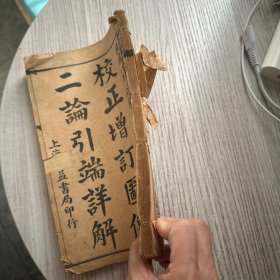 校正增訂圖位
二論引端詳解
上海
益書局印行